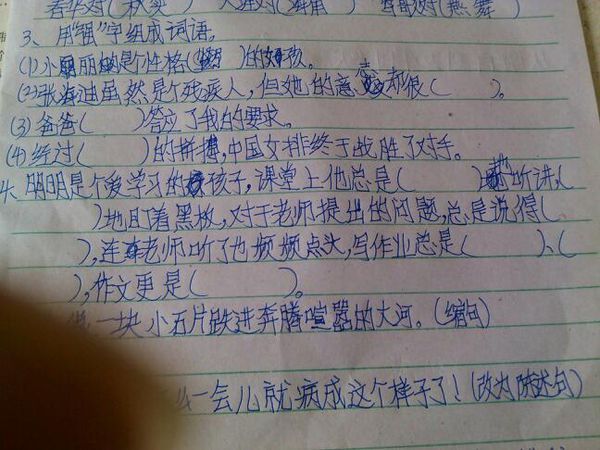 春华对(秋实) 天涯对(海角) 莺歌对(燕舞)
3、用“强”字组成词语。
(1)小丽丽是个性格( )的女孩。
(2)张海迪虽然是个残疾人,但她的意志却很( )。
(3)爸爸( )答应了我的要求。
(4)经过( )的拼搏,中国女排终于战胜了对手。
4、明明是个爱学习的孩子,课堂上他总是( )听讲,(
)地盯着黑板,对于老师提出的问题,总是说得(
),连老师听了也频频点头,写作业总是( )、(
),作文更是( )。
一块小石片跌进奔腾喧嚣的大河。(缩句)
一会儿就病成这个样子了!(改为陈述句)